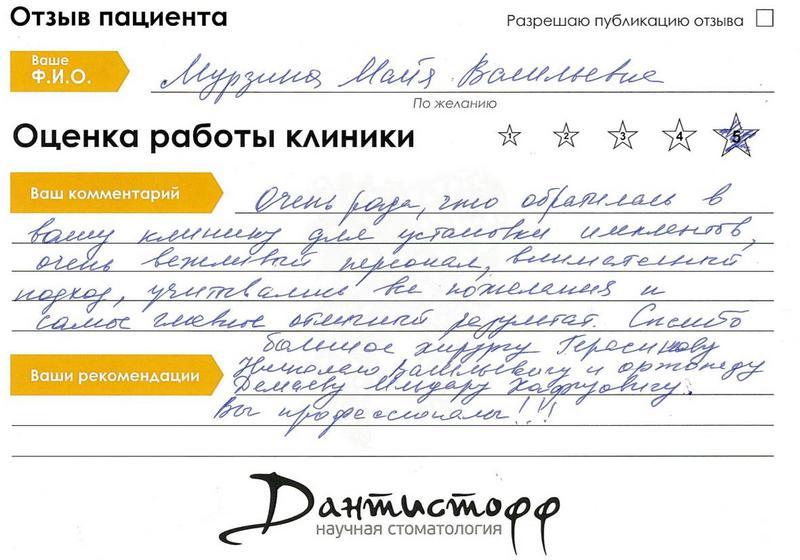 Отзыв пациента
Разрешаю публикацию отзыва
Ваше
Ф.И.О.
Мурзина Майя Васильевна
По желанию
Оценка работы клиники
1 2 3 4 5
Ваш комментарий
Очень рада, что обратилась в
вашу клинику для установки имплентов,
очень вежливый персонал, внимательный
подход, учитывались все пожелания и
самое главное отличный результат. Спасибо
большое хирургу Герасимову
Ваши рекомендации
Николаю Васильевичу и ортопеду
Демаеву Ильдару
Вы профессионалы!!!
Дантистофф
научная стоматология